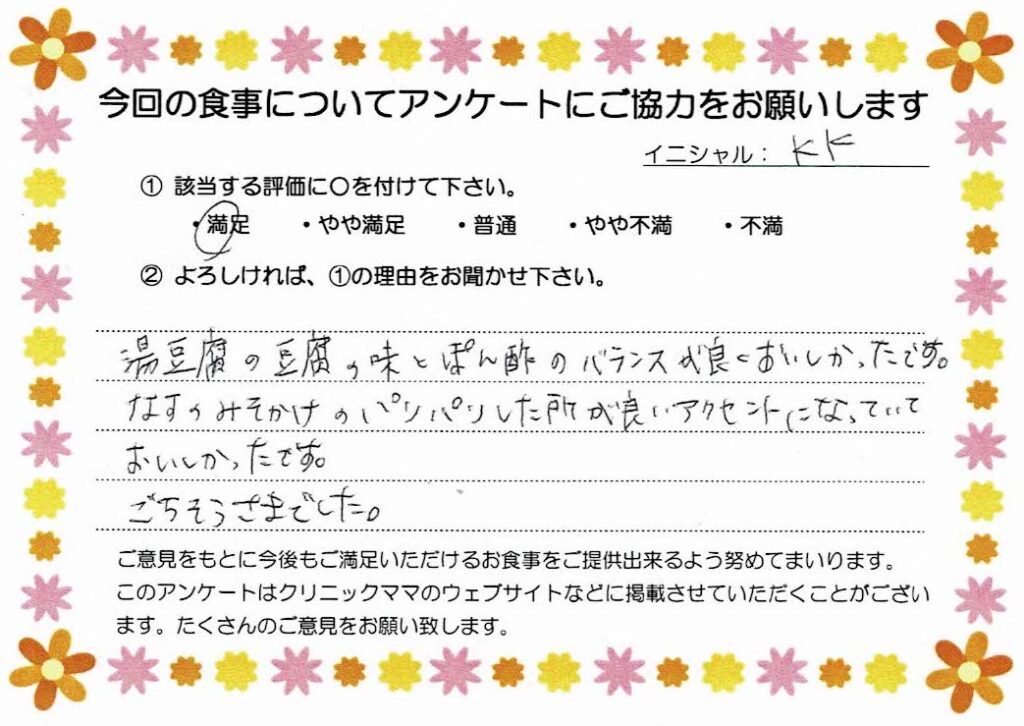 今回の食事についてアンケートにご協力をお願いします
イニシャル： KK
① 該当する評価に〇を付けて下さい。
・満足 ・やや満足 ・普通 ・やや不満 ・不満
② よろしければ、①の理由をお聞かせ下さい。
湯豆腐の豆腐の味とぽん酢のバランスが良くおいしかったです。
なすのみそかけのパリパリした所が良いアクセントになっていて
おいしかったです。
ごちそうさまでした。
ご意見をもとに今後もご満足いただけるお食事をご提供出来るよう努めてまいります。
このアンケートはクリニックママのウェブサイトなどに掲載させていただくことがござい
ます。たくさんのご意見をお願い致します。